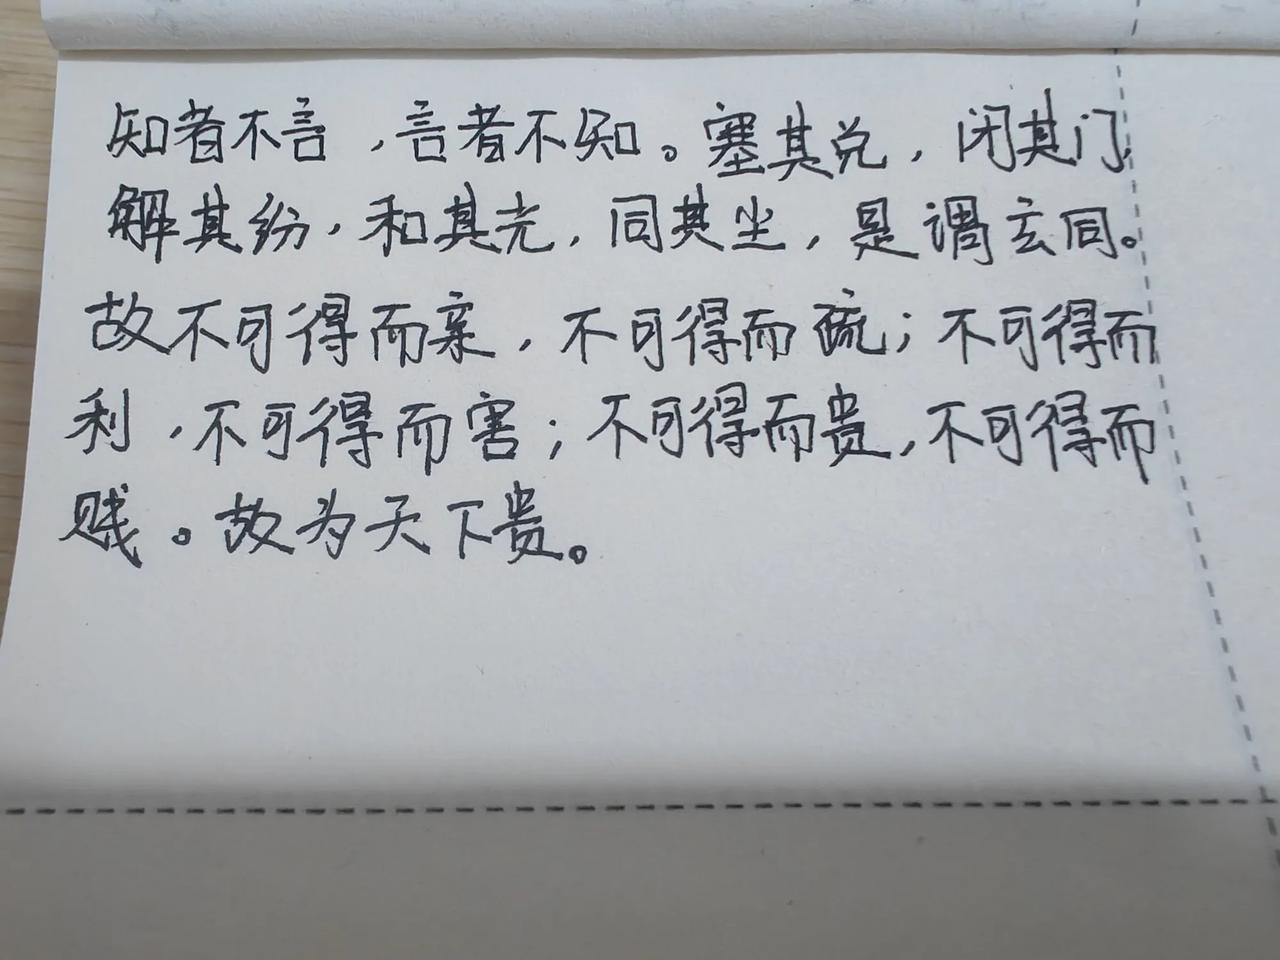 知者不言，言者不知。塞其兑，闭其门，
解其纷，和其光，同其尘，是谓玄同。
故不可得而亲，不可得而疏；不可得而
利，不可得而害；不可得而贵，不可得而
贱。故为天下贵。